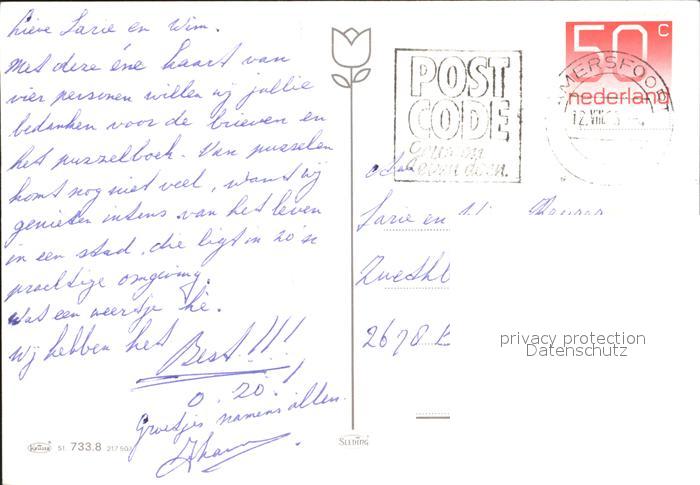 Lieve Sarie en Wim.
Met deze éne kaart van
vier personen willen wij jullie
bedanken voor de brieven en
het puzzelboek. Van puzzelen
komt nog niet veel, want wij
genieten intens van het leven
in een stad, die ligt in zo'n
prachtige omgeving.
Wat een weertje hè.
Wij hebben het
Best!!!
o. zo.!
Groetjes namens allen.
Kruger
51. 733.8
SLEDING
POST
CODE
50 c
nederland
AMERSFOORT
Sarie en
2678
privacy protection
Datenschutz